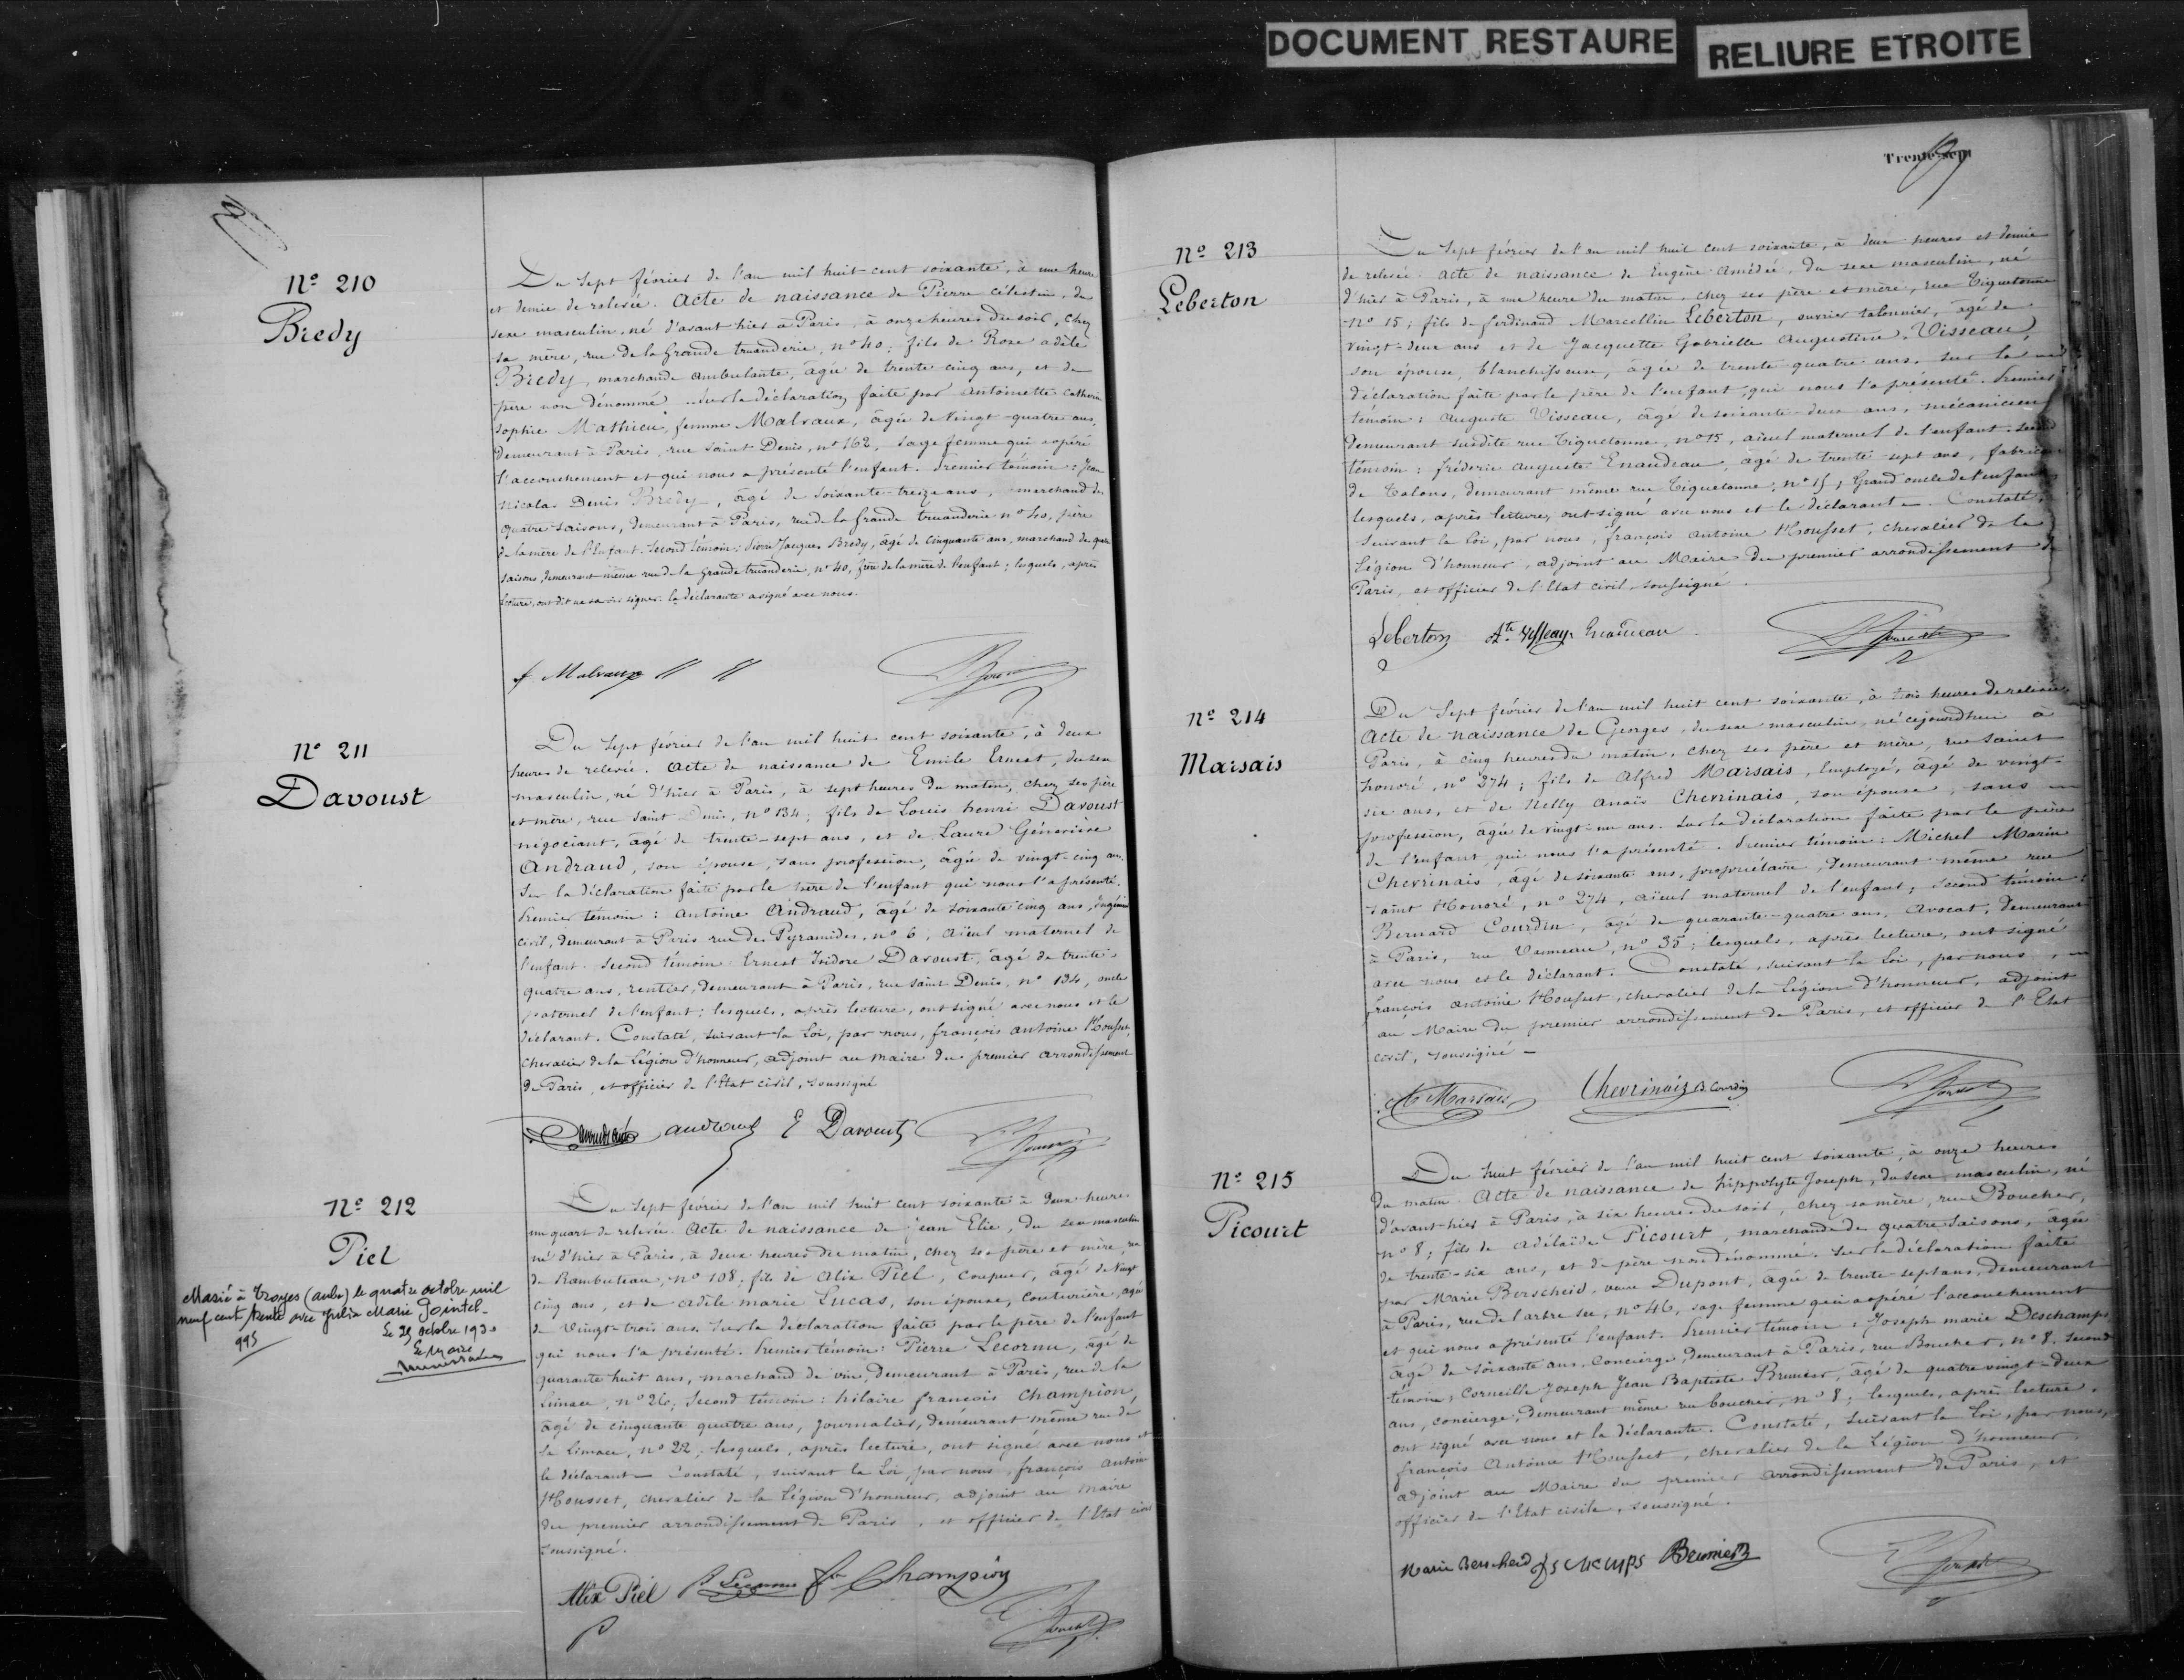 DOCUMENT RESTAURE
RELIURE ETROITE
Nº 210
Bredy
Du Sept février de l'an mil huit cent soixante, à une heure
et demie de relevée. Acte de naissance de Pierre célestin, du
sexe masculin, né d'avant hier à Paris, à onze heures du soir, chez
sa mère, rue de la Grande truanderie, nº 40; fils de Rose adèle
Bredy, marchande ambulante, âgée de trente cinq ans, et de
père non dénommé. Sur la déclaration faite par Antoinette Catherine
Sophie Mathieu, femme Malvaux, âgée de vingt-quatre ans,
demeurant à Paris, rue Saint Denis, nº 162, sage femme qui a opéré
l'accouchement et qui nous a présenté l'enfant. Premier témoin: Jean
Nicolas Denis Bredy, âgé de soixante-treize ans, marchand des
quatre saisons, demeurant à Paris, rue de la Grande truanderie nº 40, père
de la mère de l'enfant. Second témoin: Pierre Jacques Bredy, âgé de cinquante ans, marchand de quatre
saisons, demeurant même rue de la Grande truanderie, nº 40, frère de la mère de l'enfant; lesquels, après
lecture, ont dit ne savoir signer. la déclarante a signé avec nous.
f Malvaux
Nº 211
Davoust
Du Sept février de l'an mil huit cent soixante, à deux
heures de relevée. Acte de naissance de Emile Ernest, du sexe
masculin, né d'hier à Paris, à sept heures du matin, chez ses père
et mère, rue Saint Denis, nº 134; fils de Louis henri Davoust
négociant, âgé de trente-sept ans, et de Laure Géneviève
Andraud, son épouse, sans profession, âgée de vingt-cinq ans.
Sur la déclaration faite par le père de l'enfant qui nous l'a présenté.
Premier témoin: Antoine Andraud, âgé de soixante cinq ans, ingénieur
civil, demeurant à Paris rue des Pyramides, nº 6, aïeul maternel de
l'enfant. Second témoin Ernest Isidore Davoust, âgé de trente-
quatre ans, rentier, demeurant à Paris, rue saint Denis, nº 134, oncle
paternel de l'enfant; lesquels, après lecture, ont signé avec nous et le
déclarant. Constaté, suivant la Loi, par nous, françois antoine
Chevalier de la Légion d'honneur, adjoint au maire du premier arrondissement
de Paris, et officier de l'Etat civil, soussigné
andraud E Davoust
Nº 212
Piel
Marié à Troyes (aube) le quatre octobre mil
neuf cent trente avec Julia Marie Jointel
Le 29 octobre 1930
Le Maire
993
Du Sept février de l'an mil huit cent soixante à deux heures
un quart de relevée. Acte de naissance de Jean Elie, du sexe masculin
né d'hier à Paris, à deux heures du matin, chez ses père et mère, rue
de Rambuteau, nº 108, fils de Alix Piel, coupeur, âgé de vingt
cinq ans, et de Adèle marie Lucas, son épouse, couturière, âgée
de vingt-trois ans. Sur la déclaration faite par le père de l'enfant
qui nous l'a présenté. Premier témoin: Pierre Lecornu, âgé de
quarante huit ans, marchand de vin, demeurant à Paris, rue de la
Limace, nº 26; Second témoin: hilaire françois Champion,
âgé de cinquante quatre ans, journalier, demeurant même rue de
la Limace, nº 22; lesquels, après lecture, ont signé avec nous et
le déclarant Constaté, suivant la Loi, par nous, françois antoine
chevalier de la Légion d'honneur, adjoint au maire
du premier arrondissement de Paris, et officier de l'Etat civil
soussigné.
Alix Piel P Lecornu fs Champion
Trente-sept
Nº 213
Leberton
Du Sept février de l'an mil huit cent soixante, à deux heures et demie
de relevée. acte de naissance de Eugène Amédée, du sexe masculin, né
d'hier à Paris, à une heure du matin, chez ses père et mère, rue Tiquetonne
nº 15; fils de ferdinand Marcellin Leberton, ouvrier talonnier, âgé de
vingt-deux ans et de Jacquette Gabrielle Augustine Visseau,
son épouse, blanchisseuse, âgée de trente quatre ans. Sur la
déclaration faite par le père de l'enfant, qui nous l'a présenté. Premier
témoin: Auguste Visseau, âgé de soixante-deux ans, mécanicien
demeurant susdite rue Tiquetonne, nº 15, aïeul maternel de l'enfant. Second
témoin: fréderic auguste Enaudeau, âgé de trente sept ans, fabricant
de talons, demeurant même rue Tiquetonne, nº 15, Grand oncle de l'enfant
lesquels, après lecture, ont signé avec nous et le déclarant. Constaté,
suivant la loi, par nous, françois antoine chevalier de la
Légion d'honneur, adjoint au Maire du premier arrondissement de
Paris, et officier de l'Etat civil soussigné.
Leberton Ate Visseau Enaudeau
Nº 214
Marsais
Du Sept février de l'an mil huit cent soixante, à trois heures de relevée
Acte de naissance de Georges, du sexe masculin, né cejourd'hui à
Paris, à cinq heures du matin, chez ses père et mère, rue Saint
honoré, nº 274; fils de Alfred Marsais, employé, âgé de vingt-
six ans, et de Nelly anaïs Chevrinais, son épouse, sans
profession, âgée de vingt-un ans. Sur la déclaration faite par le père
de l'enfant, qui nous l'a présenté. Premier témoin: Michel Marin
Chevrinais, âgé de soixante ans, propriétaire, demeurant même rue
saint Honoré, nº 274, aïeul maternel de l'enfant; Second témoin:
Bernard Courdin, âgé de quarante-quatre ans, Avocat, demeurant
à Paris, rue Vanneau, nº 35; lesquels, après lecture, ont signé
avec nous et le déclarant. Constaté, suivant la Loi, par nous,
françois antoine chevalier de la Légion d'honneur, adjoint
au Maire du premier arrondissement de Paris, et officier de l'Etat
civil, soussigné
Marsais Chevrinais B. Courdin
Nº 215
Picourt
Du huit février de l'an mil huit cent soixante, à onze heures
du matin. Acte de naissance de hippolyte Joseph, du sexe masculin, né
d'avant-hier à Paris, à six heures du soir, chez sa mère, rue Boucher,
nº 8; fils de Adélaïde Picourt, marchande de quatre Saisons, âgée
de trente-six ans, et de père non dénommé. Sur la déclaration faite
par Marie Berscheid, veuve Dupont, âgée de trente-sept ans, demeurant
à Paris, rue de l'arbre sec, nº 46, sage femme qui a opéré l'accouchement
et qui nous a présenté l'enfant. Premier témoin: Joseph marie Deschamps
âgé de soixante ans, Concierge, demeurant à Paris, rue Boucher, nº 8. Second
témoin, Corneille Joseph Jean Baptiste Brunier, âgé de quatre vingt-deux
ans, concierge, demeurant même rue boucher, nº 8; lesquels, après lecture,
ont signé avec nous et la déclarante. Constaté, suivant la Loi, par nous,
françois Antoine chevalier de la Légion d'honneur,
adjoint au Maire du premier arrondissement de Paris, et
officier de l'Etat civile, soussigné.
Marie Berscheid